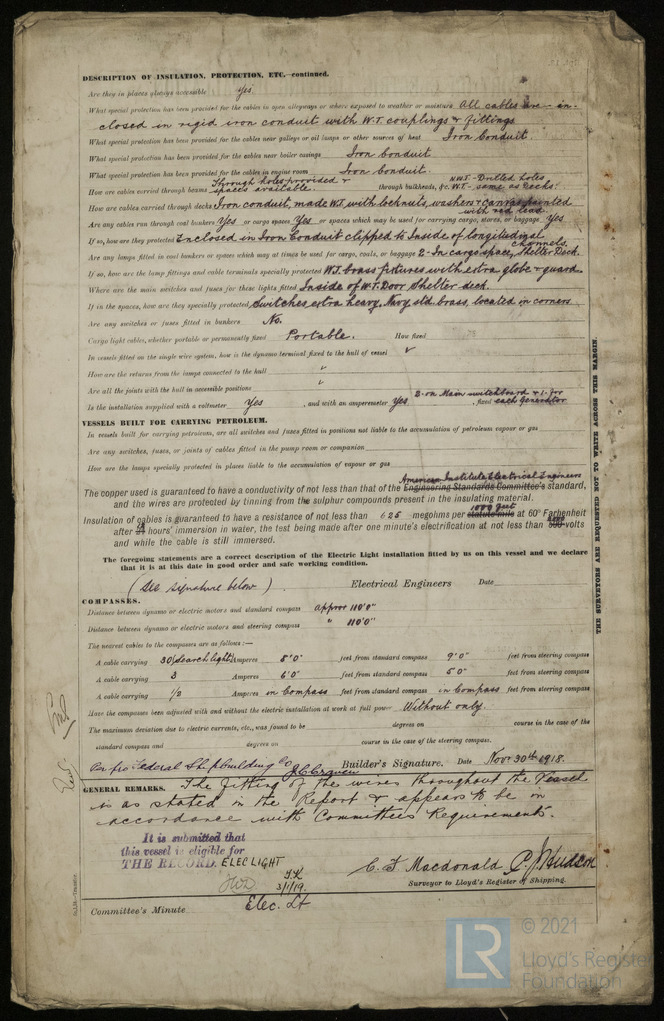 DESCRIPTION OF INSULATION, PROTECTION, ETC.—continued.
Are they in places always accessible Yes
What special protection has been provided for the cables in open alleyways or where exposed to weather or moisture All cables are in-
closed in rigid iron conduit with W.T. couplings & fittings
What special protection has been provided for the cables near galleys or oil lamps or other sources of heat Iron Conduit
What special protection has been provided for the cables near boiler casings Iron Conduit
What special protection has been provided for the cables in engine room Iron Conduit
How are cables carried through beams Through holes provided & spaces available. through bulkheads, &c. N.W.T.- Drilled holes W.T.- same as Decks.
How are cables carried through decks Iron conduit, made W.T. with locknuts, washers & canvas painted with red lead
Are any cables run through coal bunkers Yes or cargo spaces Yes or spaces which may be used for carrying cargo, stores, or baggage Yes
If so, how are they protected Enclosed in Iron Conduit clipped to Inside of longitudinal channels.
Are any lamps fitted in coal bunkers or spaces which may at times be used for cargo, coals, or baggage 2- In cargo space, Shelter Deck.
If so, how are the lamp fittings and cable terminals specially protected W.T. brass fixtures with extra globe & guard
Where are the main switches and fuses for these lights fitted Inside of W.T. Door Shelter deck.
If in the spaces, how are they specially protected Switches extra heavy, Navy std. brass, located in corners
Are any switches or fuses fitted in bunkers No.
Cargo light cables, whether portable or permanently fixed Portable. How fixed
In vessels fitted on the single wire system, how is the dynamo terminal fixed to the hull of vessel ✓
How are the returns from the lamps connected to the hull "
Are all the joints with the hull in accessible positions "
Is the installation supplied with a voltmeter Yes, and with an amperemeter Yes, fixed 2- on Main switchboard & 1- for each Generator
VESSELS BUILT FOR CARRYING PETROLEUM.
In vessels built for carrying petroleum, are all switches and fuses fitted in positions not liable to the accumulation of petroleum vapour or gas
Are any switches, fuses, or joints of cables fitted in the pump room or companion
How are the lamps specially protected in places liable to the accumulation of vapour or gas
American Institute Electrical Engineers
The copper used is guaranteed to have a conductivity of not less than that of the Engineering Standards Committee's standard,
and the wires are protected by tinning from the sulphur compounds present in the insulating material.
1000 feet
Insulation of cables is guaranteed to have a resistance of not less than 625 megohms per statute mile at 60° Farhenheit
after 24 hours' immersion in water, the test being made after one minute's electrification at not less than 500 volts
and while the cable is still immersed.
The foregoing statements are a correct description of the Electric Light installation fitted by us on this vessel and we declare
that it is at this date in good order and safe working condition.
(See signature below) Electrical Engineers Date
COMPASSES.
Distance between dynamo or electric motors and standard compass approx 110'0"
Distance between dynamo or electric motors and steering compass " 110'0"
The nearest cables to the compasses are as follows:—
A cable carrying 30 (searchlight) Amperes 8'0" feet from standard compass 9'0" feet from steering compass
A cable carrying 3 Amperes 6'0" feet from standard compass 5'0" feet from steering compass
A cable carrying 1/2 Amperes in Compass feet from standard compass in Compass feet from steering compass
Have the compasses been adjusted with and without the electric installation at work at full power Without only.
The maximum deviation due to electric currents, etc., was found to be degrees on course in the case of the
standard compass and degrees on course in the case of the steering compass.
Per pro Federal Shipbuilding Co J.C. Craven Builder's Signature. Date Nov. 30th 1918.
GENERAL REMARKS. The fitting of the wires throughout the Vessel
is as stated in the Report & appears to be in
accordance with Committee's Requirements.
It is submitted that
this vessel is eligible for
THE RECORD. ELEC LIGHT
3/1/19.
C. F. Macdonald P. J. Hudson
Surveyor to Lloyd's Register of Shipping.
Committee's Minute Elec. Lt
THE SURVEYORS ARE REQUESTED NOT TO WRITE ACROSS THIS MARGIN.
LR
© 2021
Lloyd's Register
Foundation